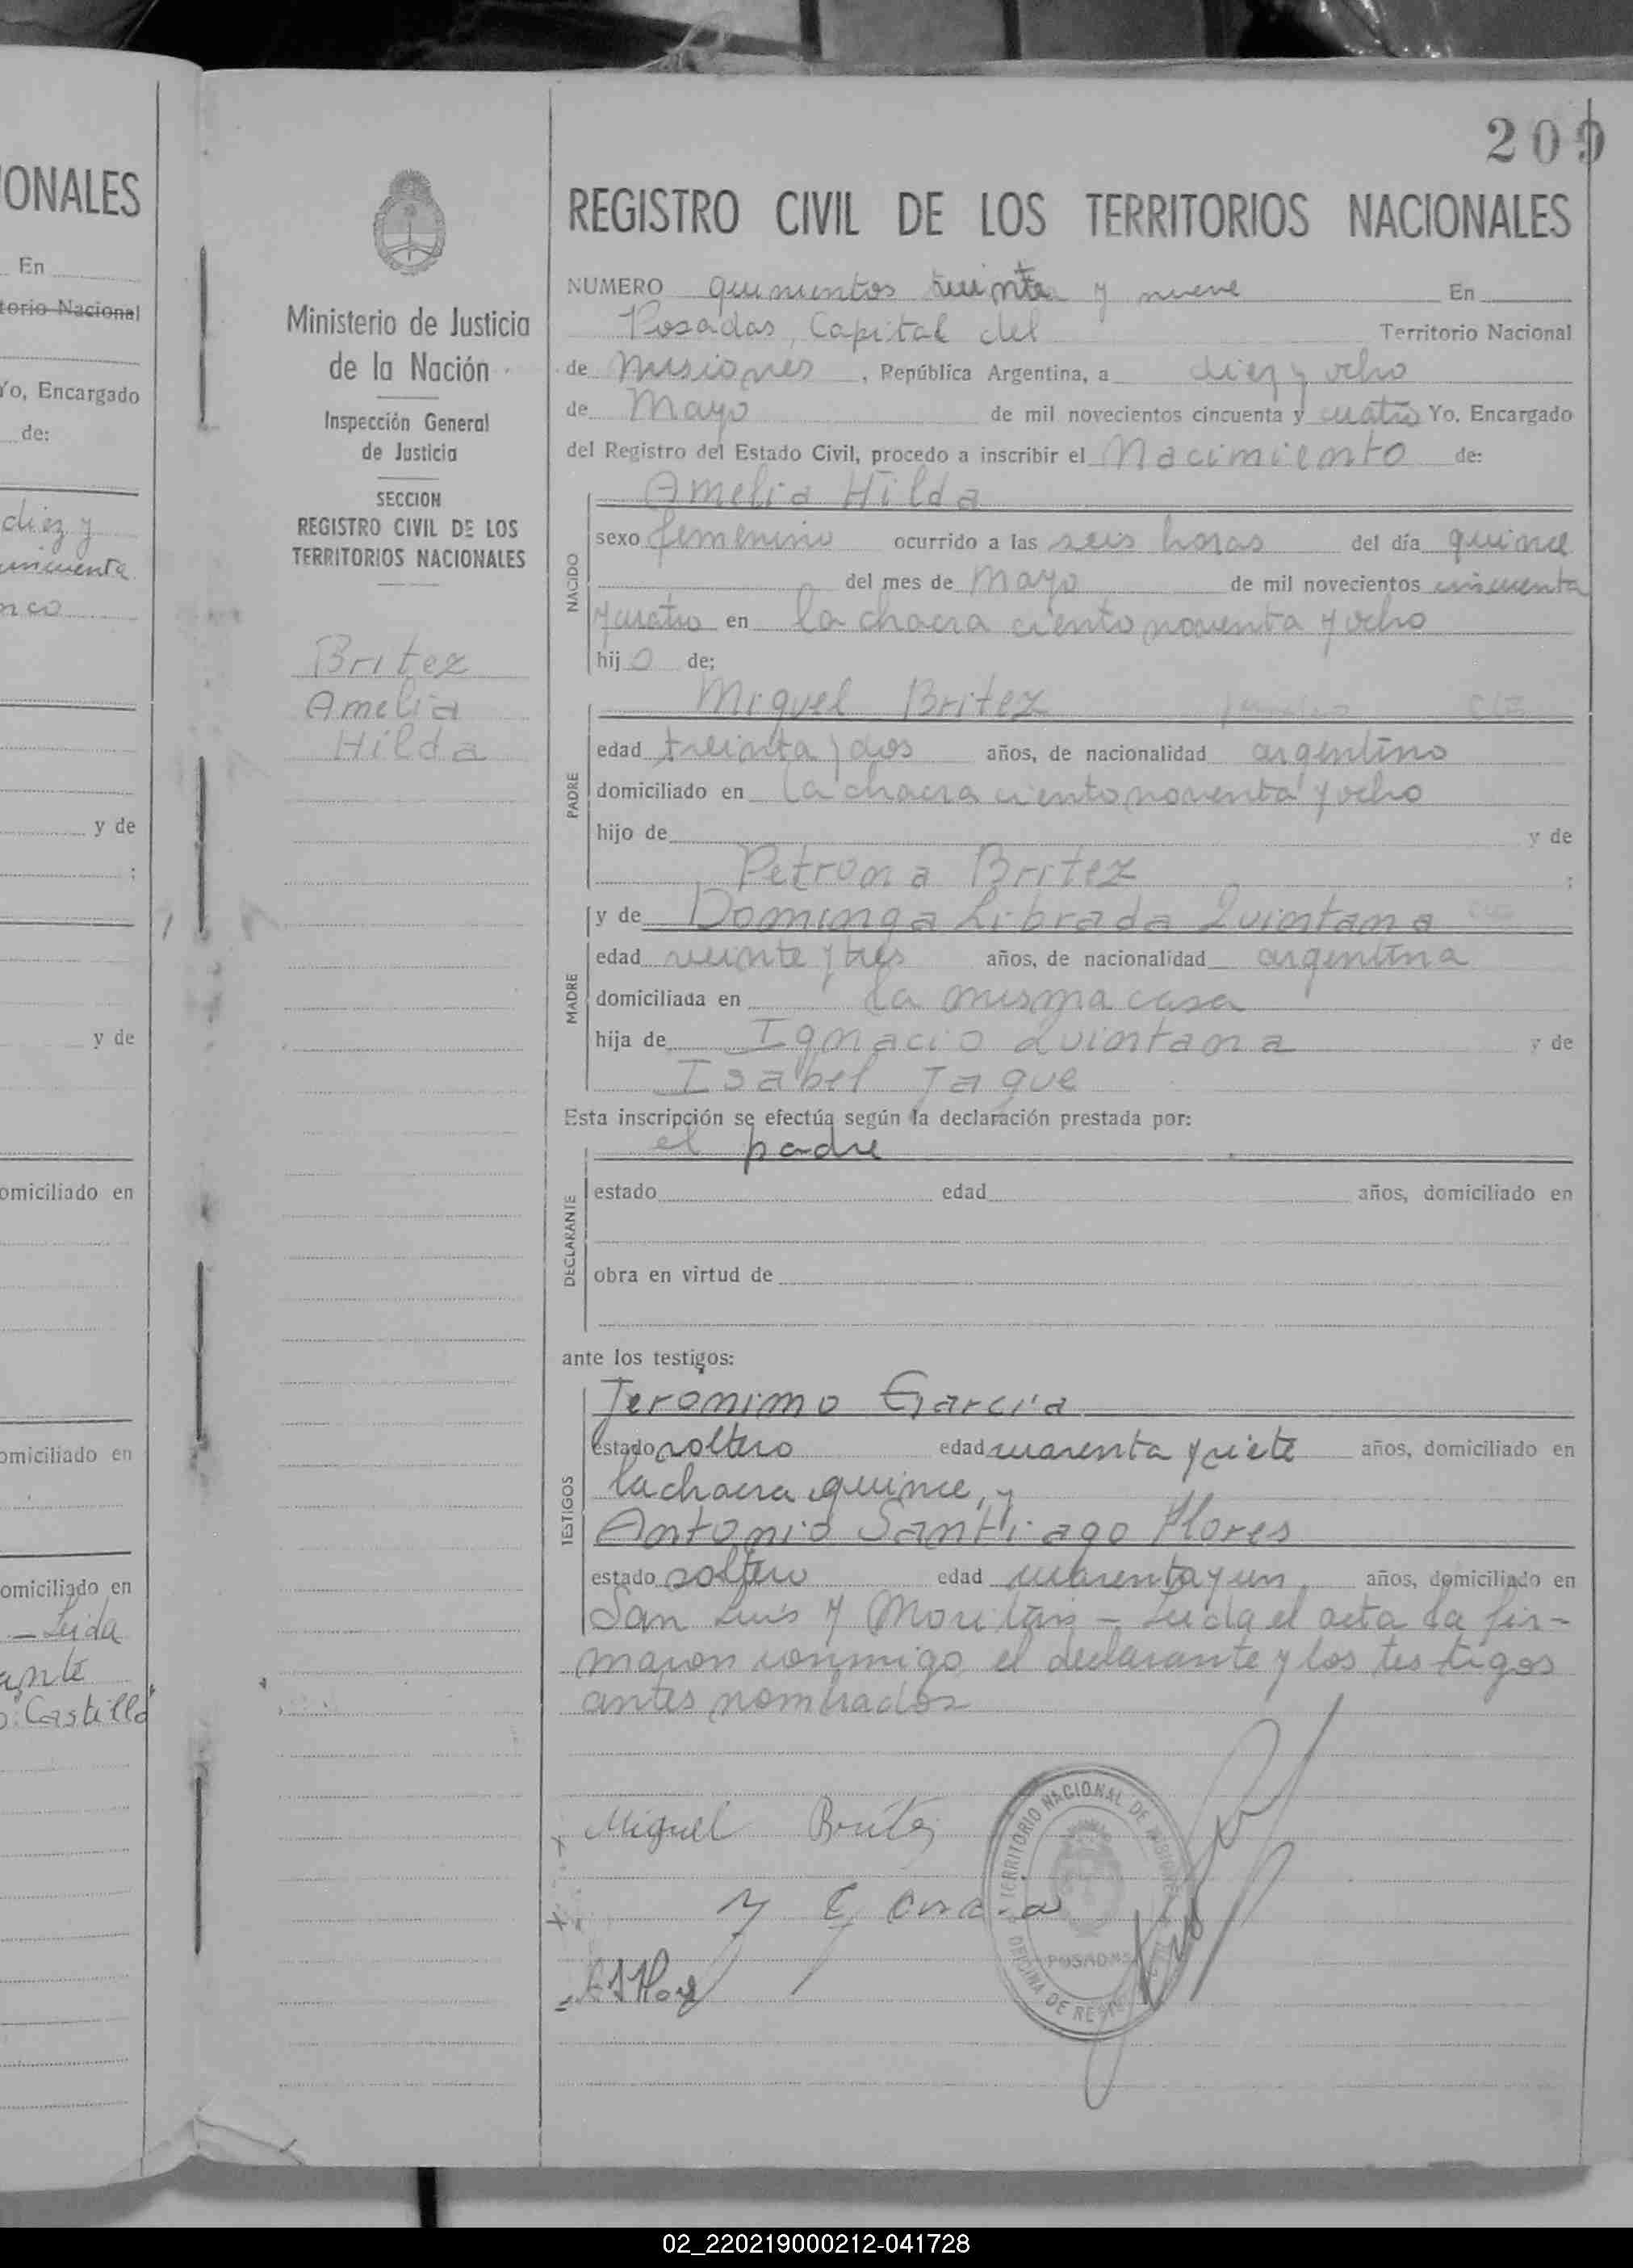 209
IONALES
En
torio Nacional
Yo, Encargado
de:
diez y
cincuenta
nco
y de
;
y de
omiciliado en
omiciliado en
omiciliado en
- Leida
ante
o: Castillo
Ministerio de Justicia
de la Nación
Inspección General
de Justicia
SECCION
REGISTRO CIVIL DE LOS
TERRITORIOS NACIONALES
Britez
Amelia
Hilda
REGISTRO CIVIL DE LOS TERRITORIOS NACIONALES
NUMERO quinientos treinta y nueve En
Posadas, Capital del Territorio Nacional
de Misiones, República Argentina, a diez y ocho
de Mayo de mil novecientos cincuenta y cuatro Yo, Encargado
del Registro del Estado Civil, procedo a inscribir el Nacimiento de:
Amelia Hilda
NACIDO
sexo femenino ocurrido a las seis horas del día quince
del mes de Mayo de mil novecientos cincuenta
y cuatro en la chacra ciento noventa y ocho
hija de:
Miguel Britez
PADRE
edad treinta y dos años, de nacionalidad argentino
domiciliado en la chacra ciento noventa y ocho
hijo de y de
Petrona Britez ;
y de Dominga Librada Quintana
MADRE
edad veinte y tres años, de nacionalidad argentina
domiciliada en la misma casa
hija de Ignacio Quintana y de
Isabel Jaque
Esta inscripción se efectúa según la declaración prestada por:
el padre
DECLARANTE
estado edad años, domiciliado en
obra en virtud de
ante los testigos:
Jeronimo Garcia
TESTIGOS
estado soltero edad cuarenta y siete años, domiciliado en
la chacra quince, y
Antonio Santiago Flores
estado soltero edad cuarenta y un años, domiciliado en
San Luis y - Leida el acta la fir-
maron conmigo el declarante y los testigos
antes nombrados
Miguel Britez
J Garcia
A S Flores
TERRITORIO NACIONAL DE MISIONES
POSADAS
02_220219000212-041728